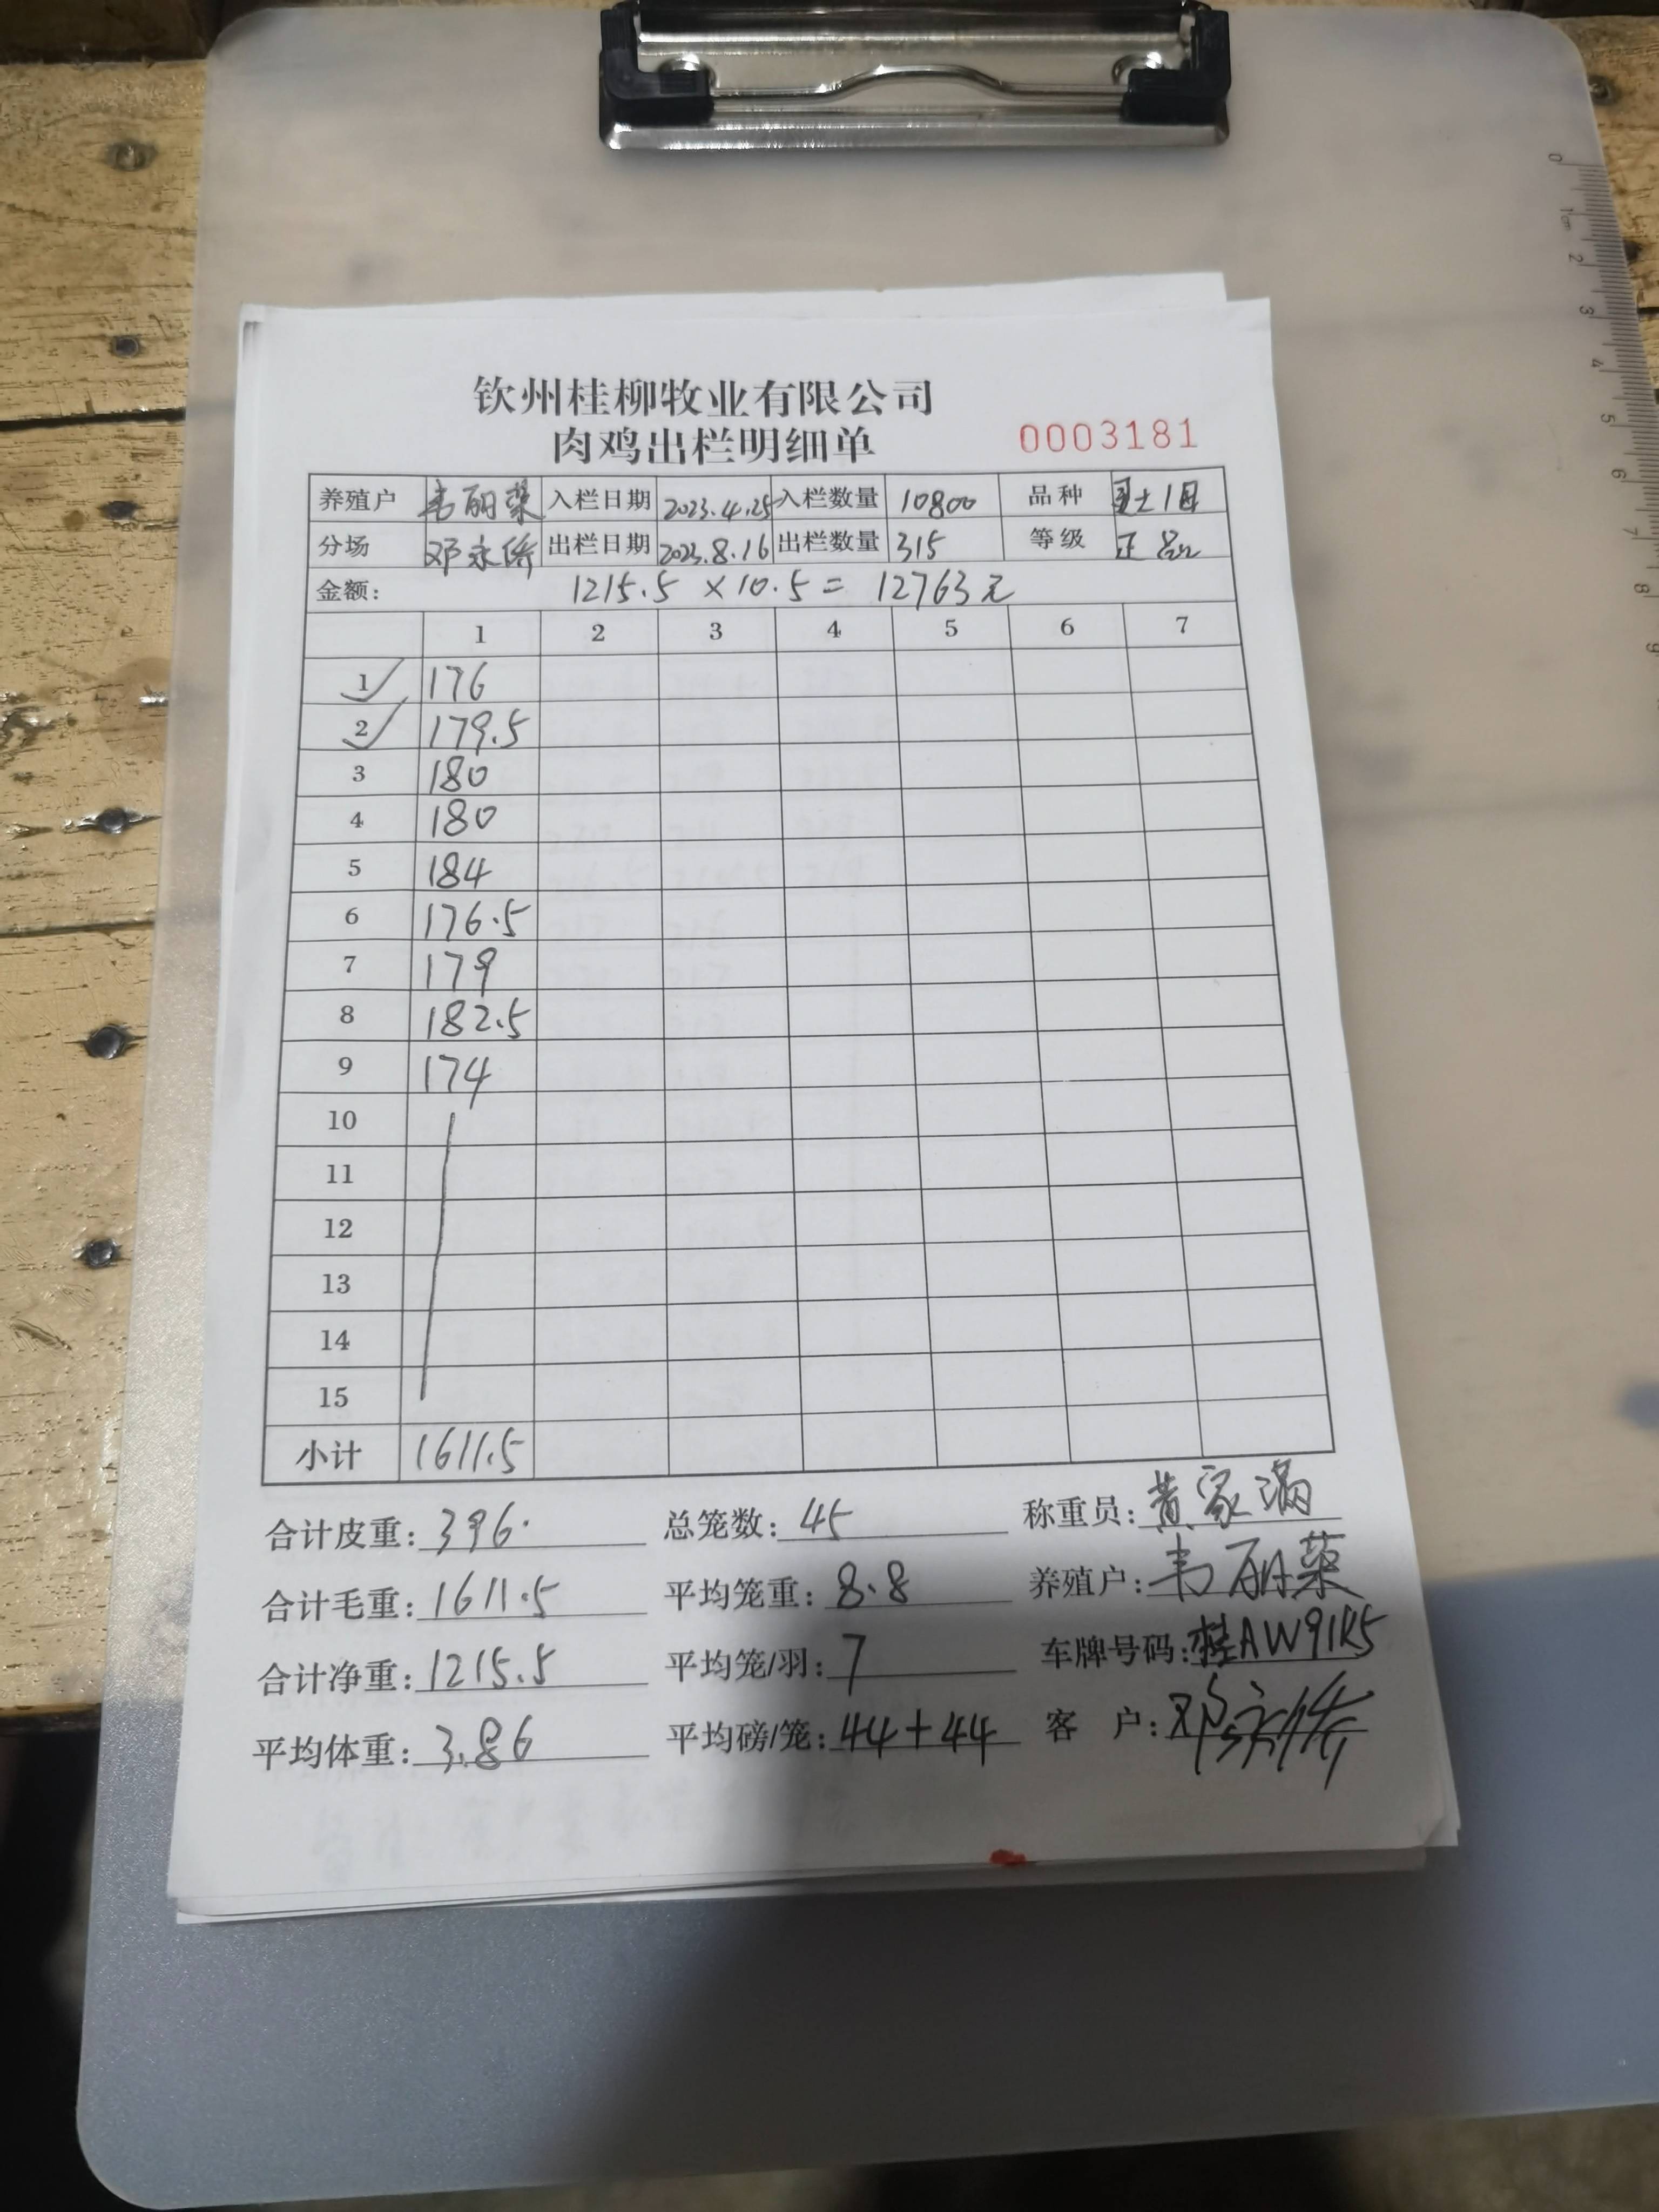 钦州桂柳牧业有限公司
肉鸡出栏明细单 0003181
养殖户 韦丽荣 入栏日期 2023.4.25 入栏数量 10800 品种
分场 邓永 出栏日期 2023.8.16 出栏数量 315 等级 正品
金额: 1215.5 × 10.5 = 12763元
1 2 3 4 5 6 7
1 176
2 179.5
3 180
4 180
5 184
6 176.5
7 179
8 182.5
9 174
10
11
12
13
14
15
小计 1611.5
合计皮重: 396. 总笼数: 45 称重员: 黄家满
合计毛重: 1611.5 平均笼重: 8.8 养殖户: 韦丽荣
合计净重: 1215.5 平均笼/羽: 7 车牌号码: 桂AW91K5
平均体重: 3.86 平均磅/笼: 44+44 客 户: 邓永
0 1cm 2 3 4 5 6 7 8 9